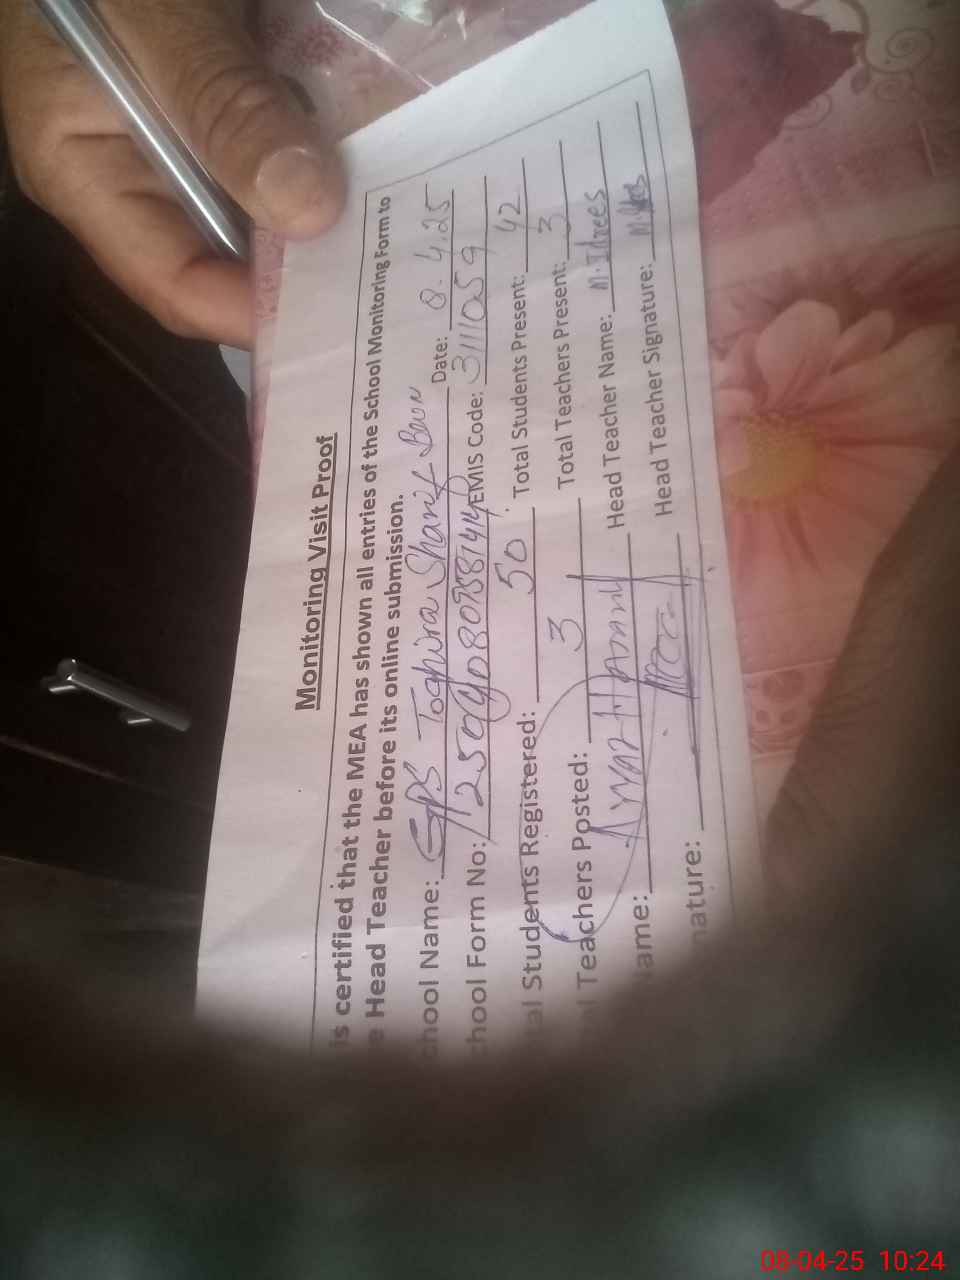 Monitoring Visit Proof
is certified that the MEA has shown all entries of the School Monitoring Form to
e Head Teacher before its online submission.
chool Name: GPS Toghira Sharif Date: 8.4.25
chool Form No: EMIS Code: 31111059
al Students Registered: 50 Total Students Present: 42
al Teachers Posted: 3 Total Teachers Present: 3
ame: Head Teacher Name: M. Idrees
nature: Head Teacher Signature:
08-04-25 10:24